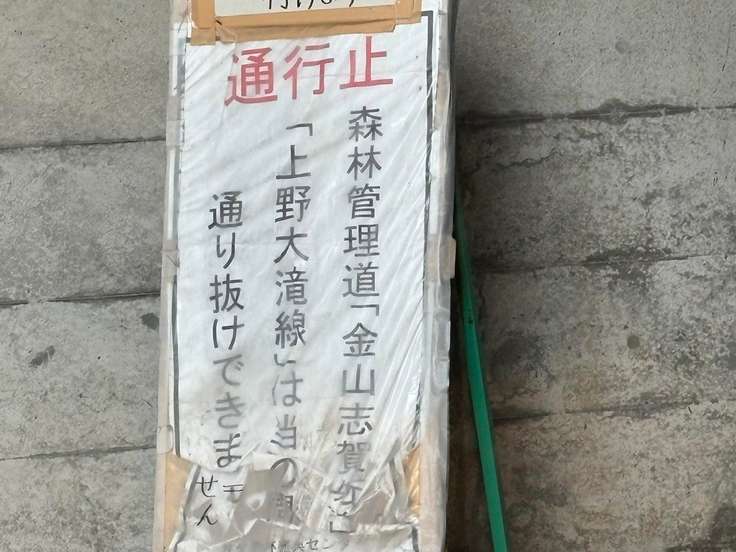 通行止
森林管理道「金山志賀
「上野大滝線」は当の
通り抜けできま
せん
セン